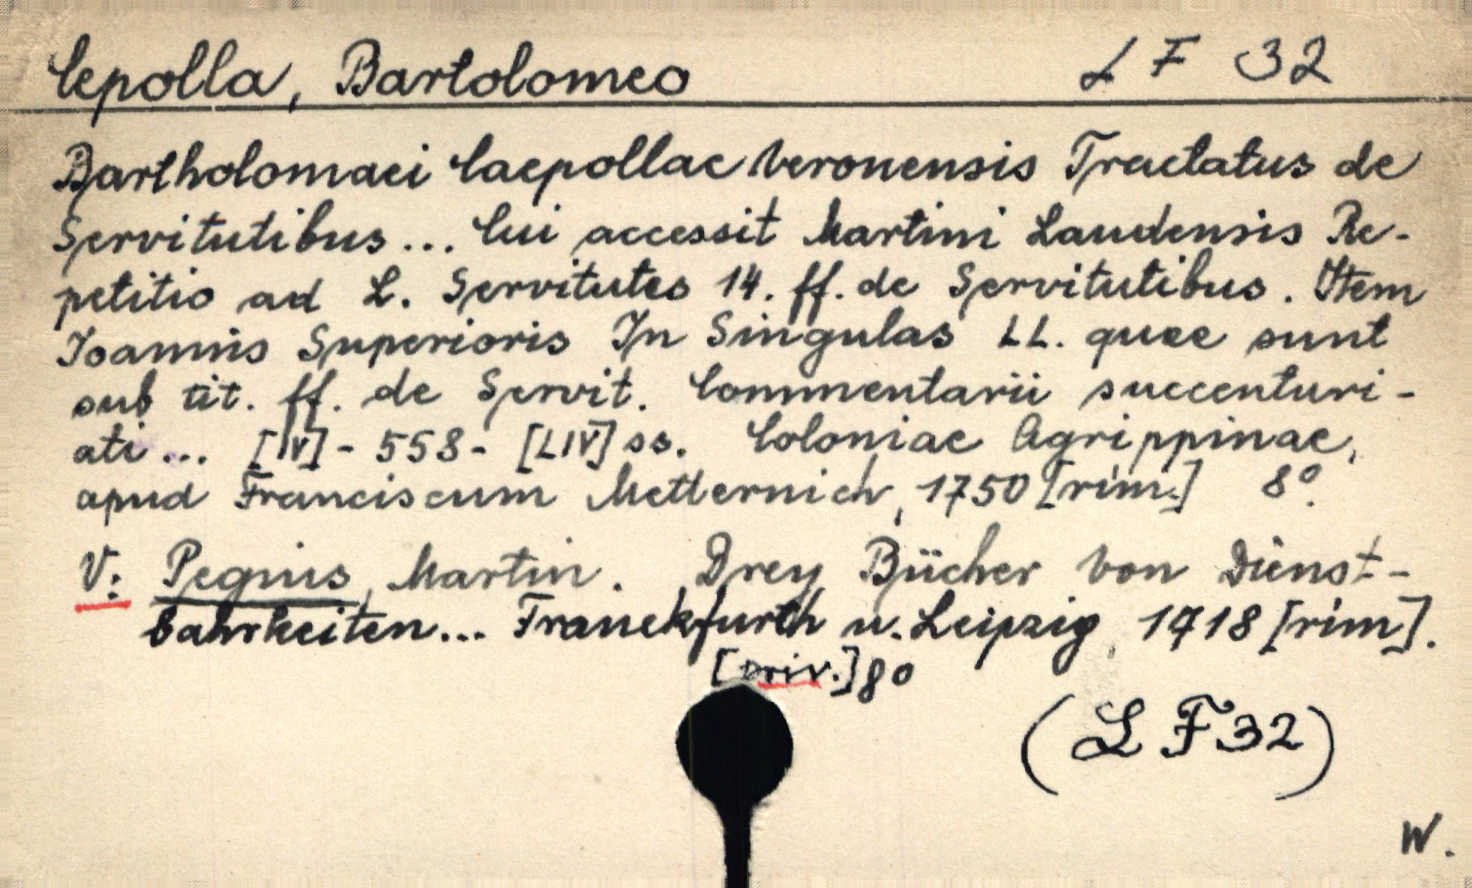 Cepolla, Bartolomeo L F 32
Bartholomaei Caepollae Veronensis Tractatus de
Servitutibus... Cui accessit Martini Laudensis Re-
petitio ad L. Servitutes 14. ff. de Servitutibus. Item
Ioannis Superioris In Singulas LL. quae sunt
sub tit. ff. de Servit. Commentarii succenturi-
ati... [IV] - 558 - [LIV] ss. Coloniae Agrippinae,
apud Franciscum Metternich, 1750 [rim.] 8°.
V: Pegius, Martin. Drey Bücher von Dienst-
bahrkeiten... Franckfurth u. Leipzig, 1718 [rim].
[priv.] 8°
(L F 32)
W.